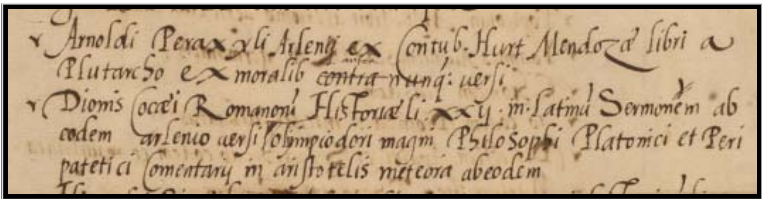 Arnoldi Peraxyli Arlenij ex Contub. Hurt Mendozæ libri a
Plutarcho ex moralib contra nunq: versi
Dionis Cocæi Romanorū Historiæ li xxij in Latinū Sermonem ab
eodem arlenio versi Olimpiodori magni Philosophi Platonici et Peri
patetici Comentarij in aristotelis meteora ab eodem